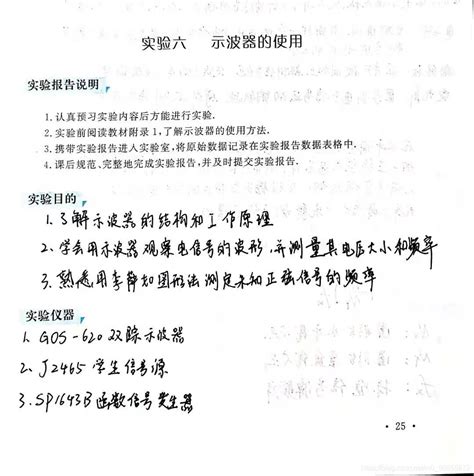 实验六 示波器的使用
实验报告说明
1. 认真预习实验内容后方能进行实验.
2. 实验前阅读教材附录 1,了解示波器的使用方法.
3. 携带实验报告进入实验室,将原始数据记录在实验报告数据表格中.
4. 课后规范、完整地完成实验报告,并及时提交实验报告.
实验目的
1. 了解示波器的结构和工作原理
2. 学会用示波器观察电信号的波形,并测量其电压大小和频率
3. 熟悉用李萨如图形法测定未知正弦信号的频率
实验仪器
1. GOS-620 双踪示波器
2. J2465 学生信号源
3. SP1643B 函数信号发生器
· 25 ·